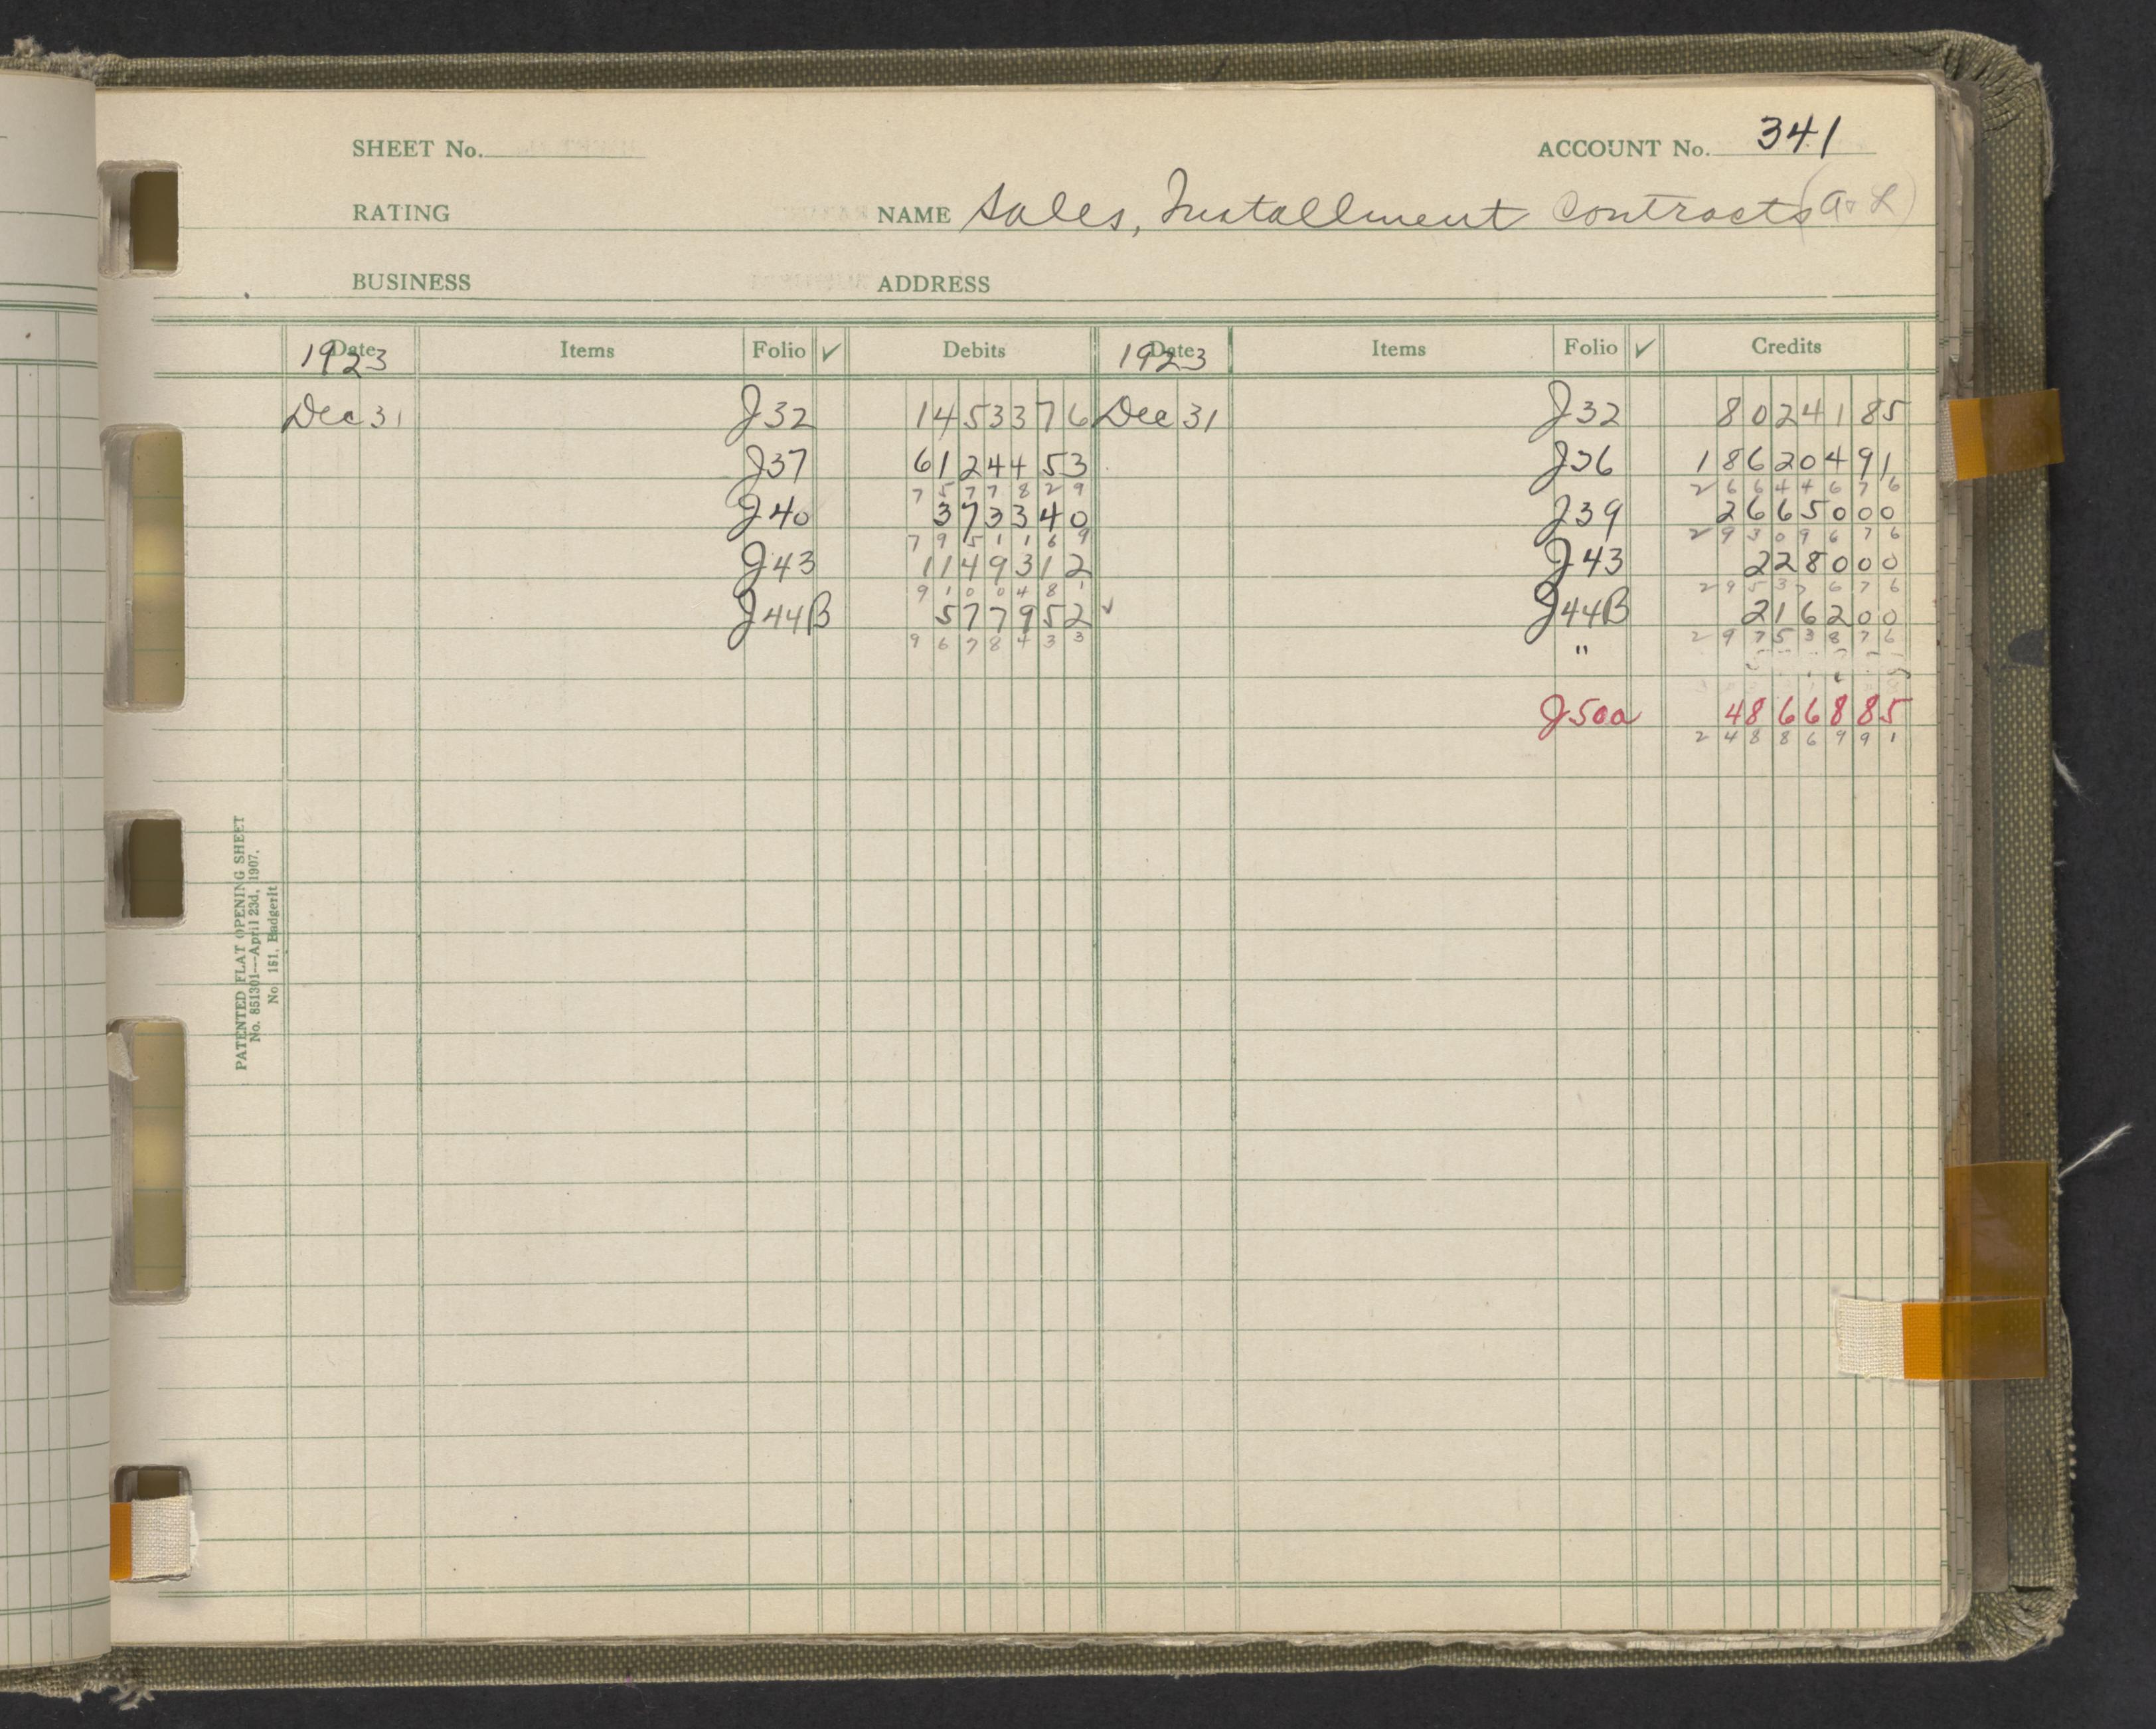 SHEET No. ACCOUNT No. 341
RATING NAME Sales, Installment Contracts (A & L)
BUSINESS ADDRESS
Date Items Folio ✓ Debits Date Items Folio ✓ Credits
1923 1923
Dec 31 J32 14533 76 Dec 31 J32 80241 85
J37 61244 53 J36 186204 91
75778 29 266446 76
J40 3733 40 J39 26650 00
79511 69 293096 76
J43 11493 12 J43 2280 00
91004 81 295376 76
J44B 5779 52 ✓ J44B 2162 00
96784 33 297538 76
"
J50a 48668 85
248869 91
PATENTED FLAT OPENING SHEET
No. 851301—April 23d, 1907.
No 151, Badgerit